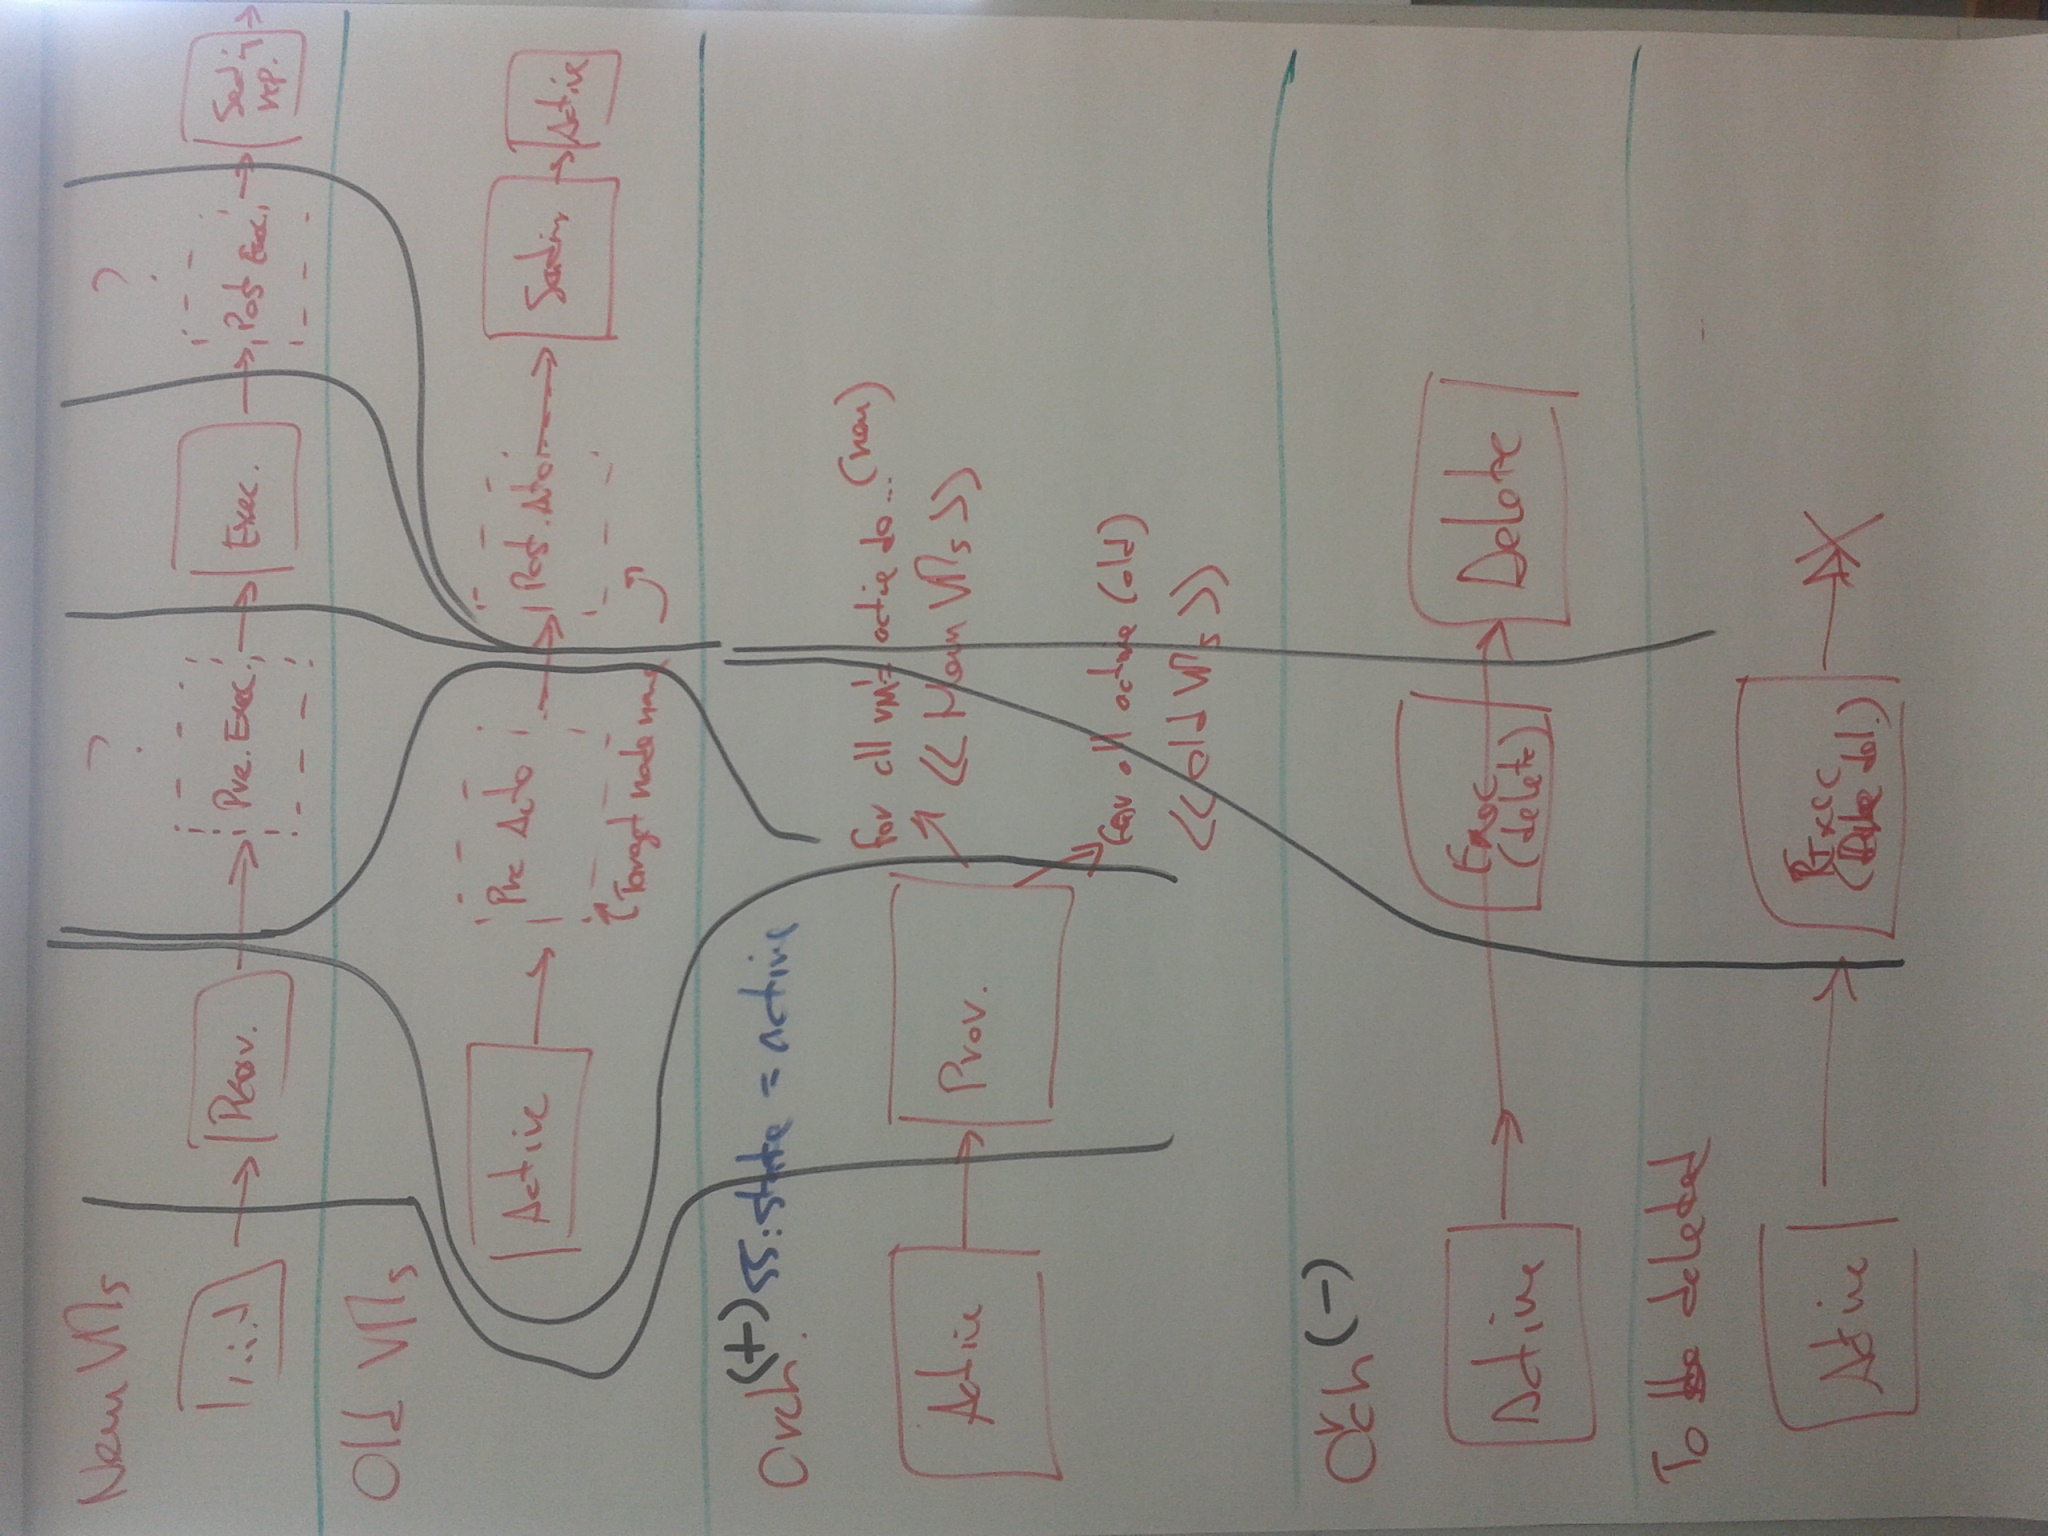 New VMs
Prov.
?
Pre. Exec.
Exec.
?
Post Exec.
Old VMs
Active
Pre Auto
(Target node name
Active
Orch. (+) SS:state = active
Active
Prov.
for all VM active do... (new)
<< New VMs >>
for all active (old)
<< old VMs >>
Orch (-)
Active
Exec
(delete)
Delete
To be deleted
Active
Exec